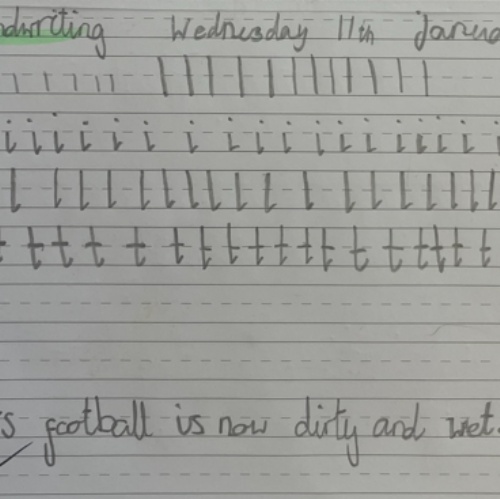 ndwriting Wednesday 11th Janua
i i i i i i i i i i i i i i i i i i
l l l l l l l l l l l l l l l l l l
t t t t t t t t t t t t t t t t t t
s football is now dirty and wet.